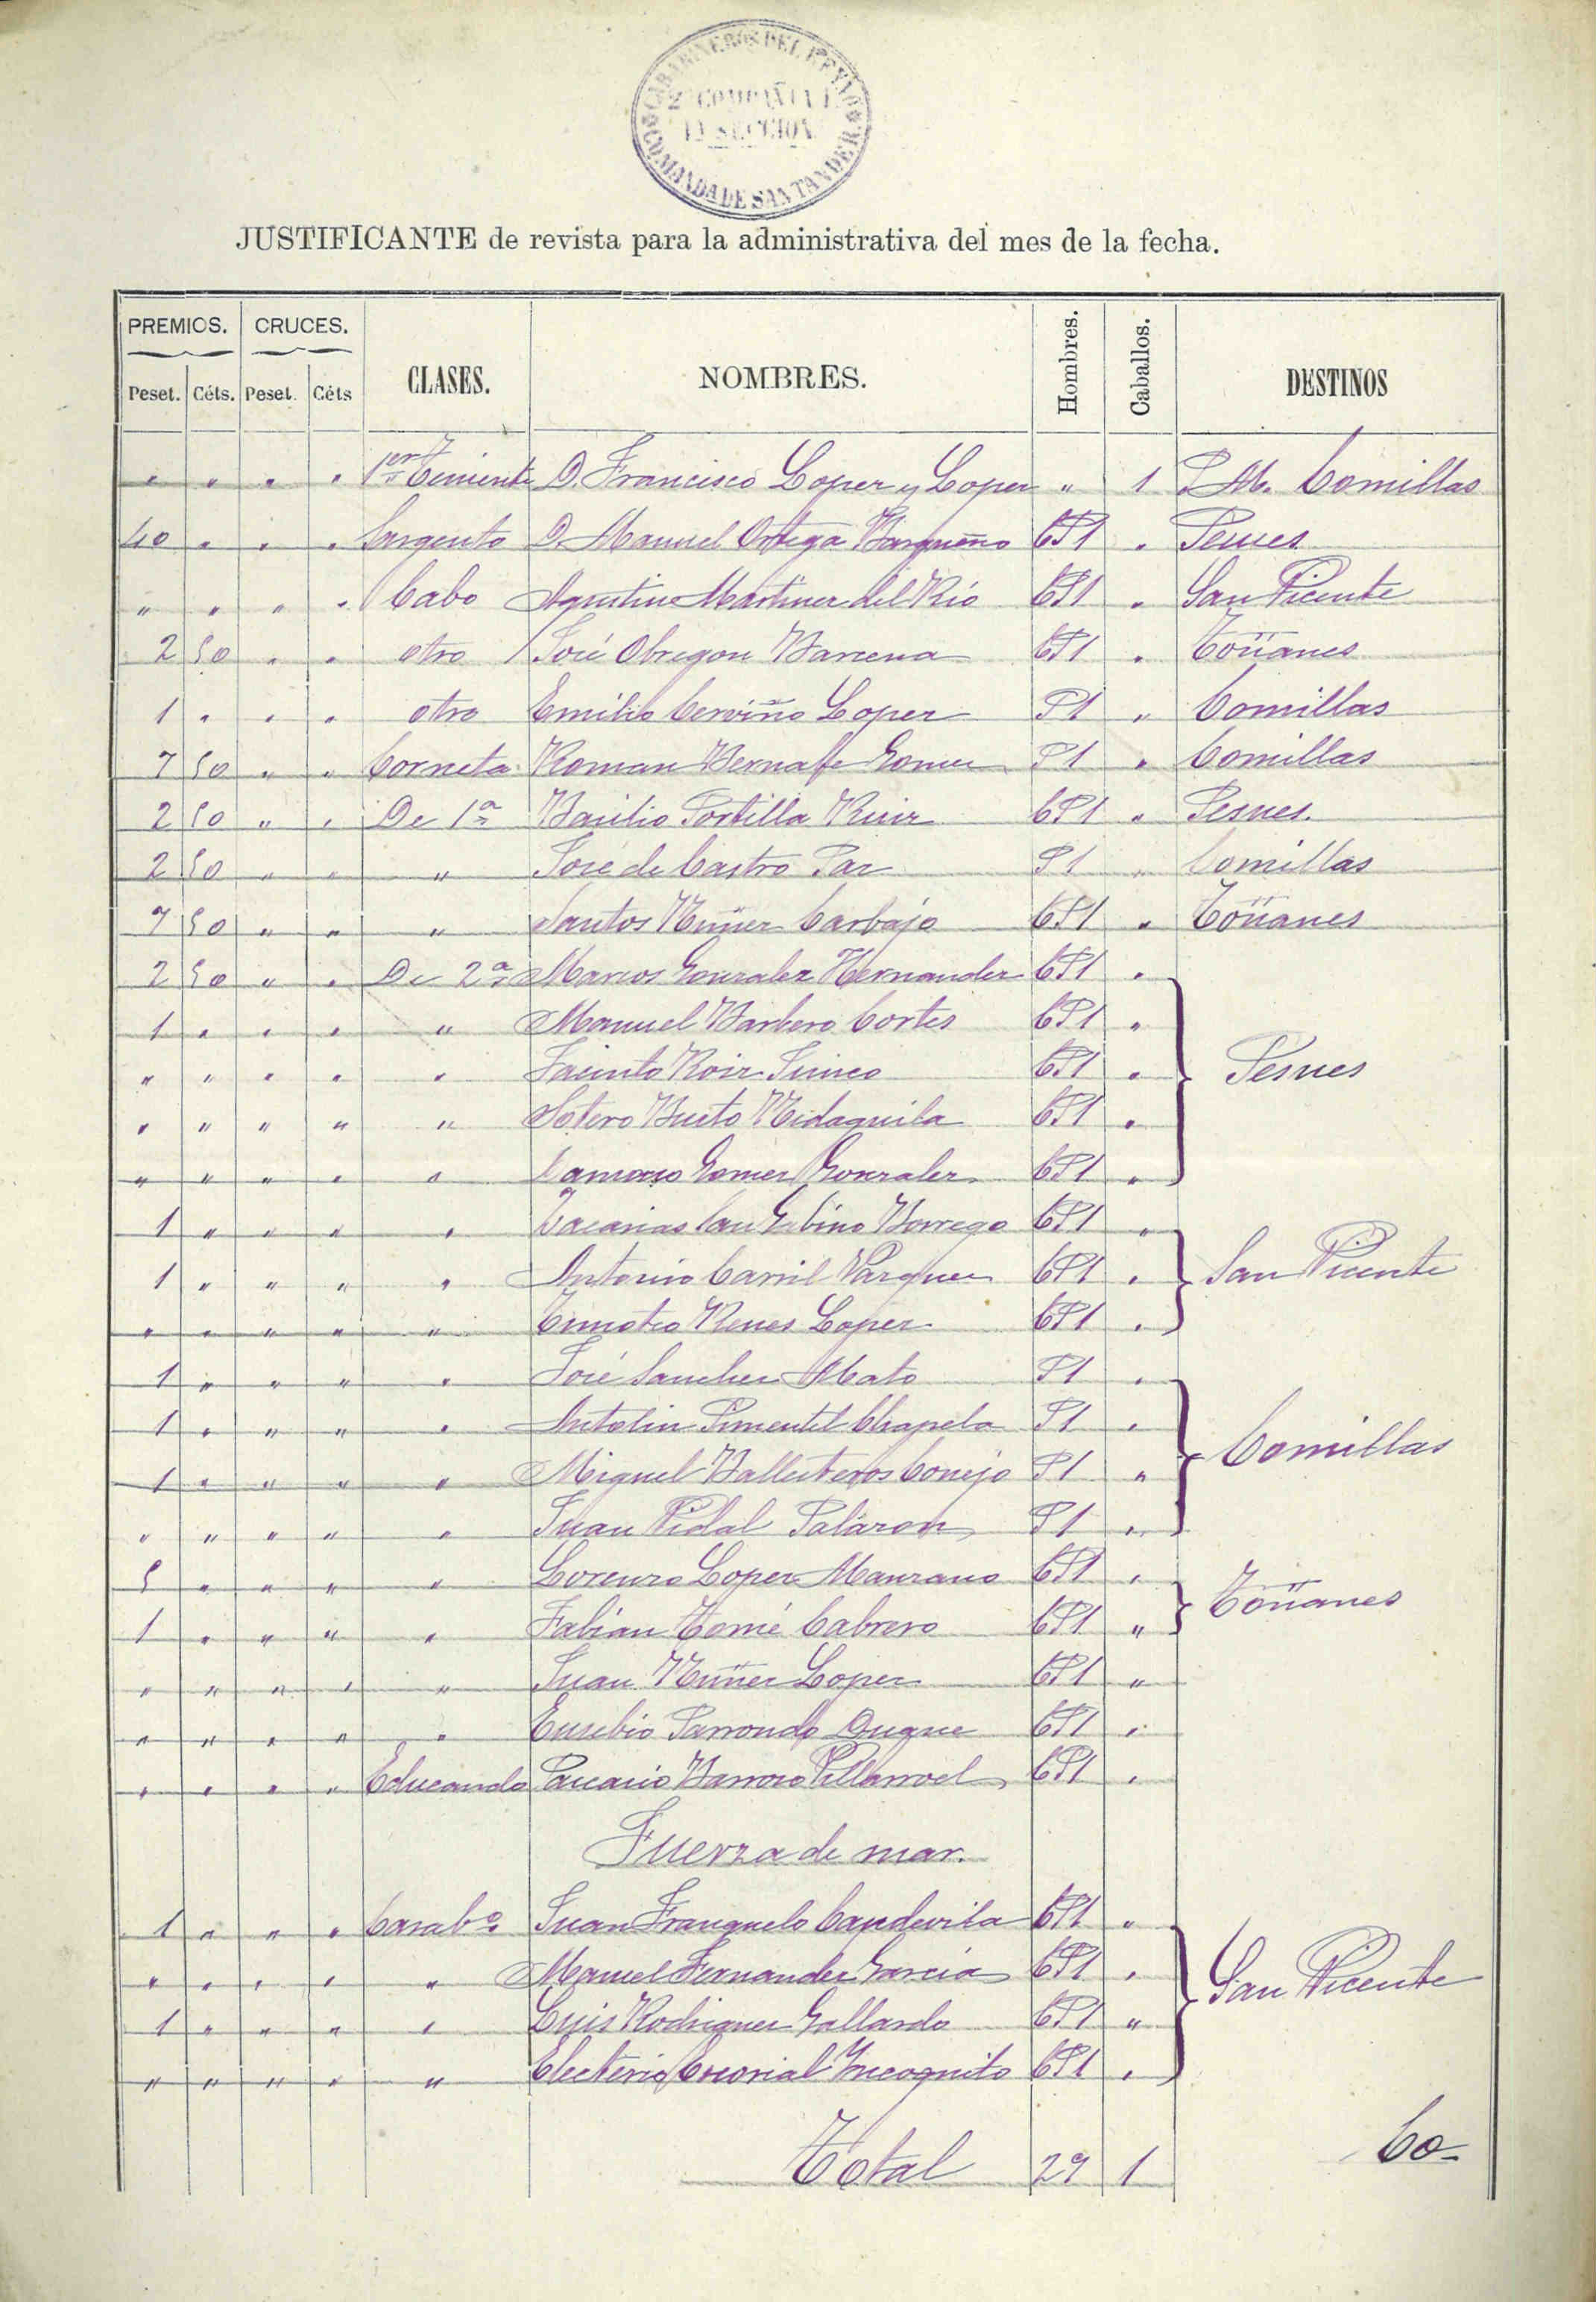 CARABINEROS DEL REYNO
2ª COMPAÑIA
SECCION
COMANDA DE SANTANDER
JUSTIFICANTE de revista para la administrativa del mes de la fecha.
PREMIOS. CRUCES. CLASES. NOMBRES. Hombres. Caballos. DESTINOS
Peset. Céts. Peset. Céts
" " " " 1er Teniente D. Francisco Lopez y Lopez " 1 P.M. Comillas
40 " " " Sargento D. Manuel Ortega Bargueño CP1 " Pesues
" " " " Cabo Agustin Martinez del Rio CP1 " San Vicente
2 50 " " otro José Obregon Barcena CP1 " Toñanes
1 " " " otro Emilio Cerviño Lopez P1 " Comillas
7 50 " " Corneta Roman Bernabe Gomez P1 " Comillas
2 50 " " De 1ª Basilio Portilla Ruiz CP1 " Pesues.
2 50 " " " José de Castro Paz P1 " Comillas
7 50 " " " Santos Nuñez Carbajo CP1 " Toñanes
2 50 " " De 2ª Marcos Gonzalez Hernandez CP1 "
1 " " " " Manuel Barbero Cortes CP1 "
" " " " " Jacinto Roiz CP1 " Pesues
" " " " " Sotero Busto CP1 "
" " " " " Gomez Gonzalez CP1 "
1 " " " " Zacarias San Gabino Borrego CP1 "
1 " " " " Antonio Carril Vazquez CP1 " San Vicente
" " " " " Timoteo Renes Lopez CP1 "
1 " " " " José Sanchez Mato P1 "
1 " " " " Antolin Pimentel Chapela P1 "
1 " " " " Miguel Ballesteros Conejo P1 " Comillas
" " " " " Juan Vidal Palaron P1 "
5 " " " " Lorenzo Lopez Manzano CP1 "
1 " " " " Fabian Tomé Cabrero CP1 " Toñanes
" " " " " Juan Nuñez Lopez CP1 "
" " " " " Eusebio Parrondo Duque CP1 "
" " " " Educando Barroso Villarroel CP1 "
Fuerza de mar.
1 " " " Carabº Juan Franquelo Capdevila CP1 "
" " " " " Manuel Fernandez Garcia CP1 " San Vicente
1 " " " " Luis Rodriguez Gallardo CP1 "
" " " " " Electerio Escorial Incognito CP1 "
Total 29 1
Co-